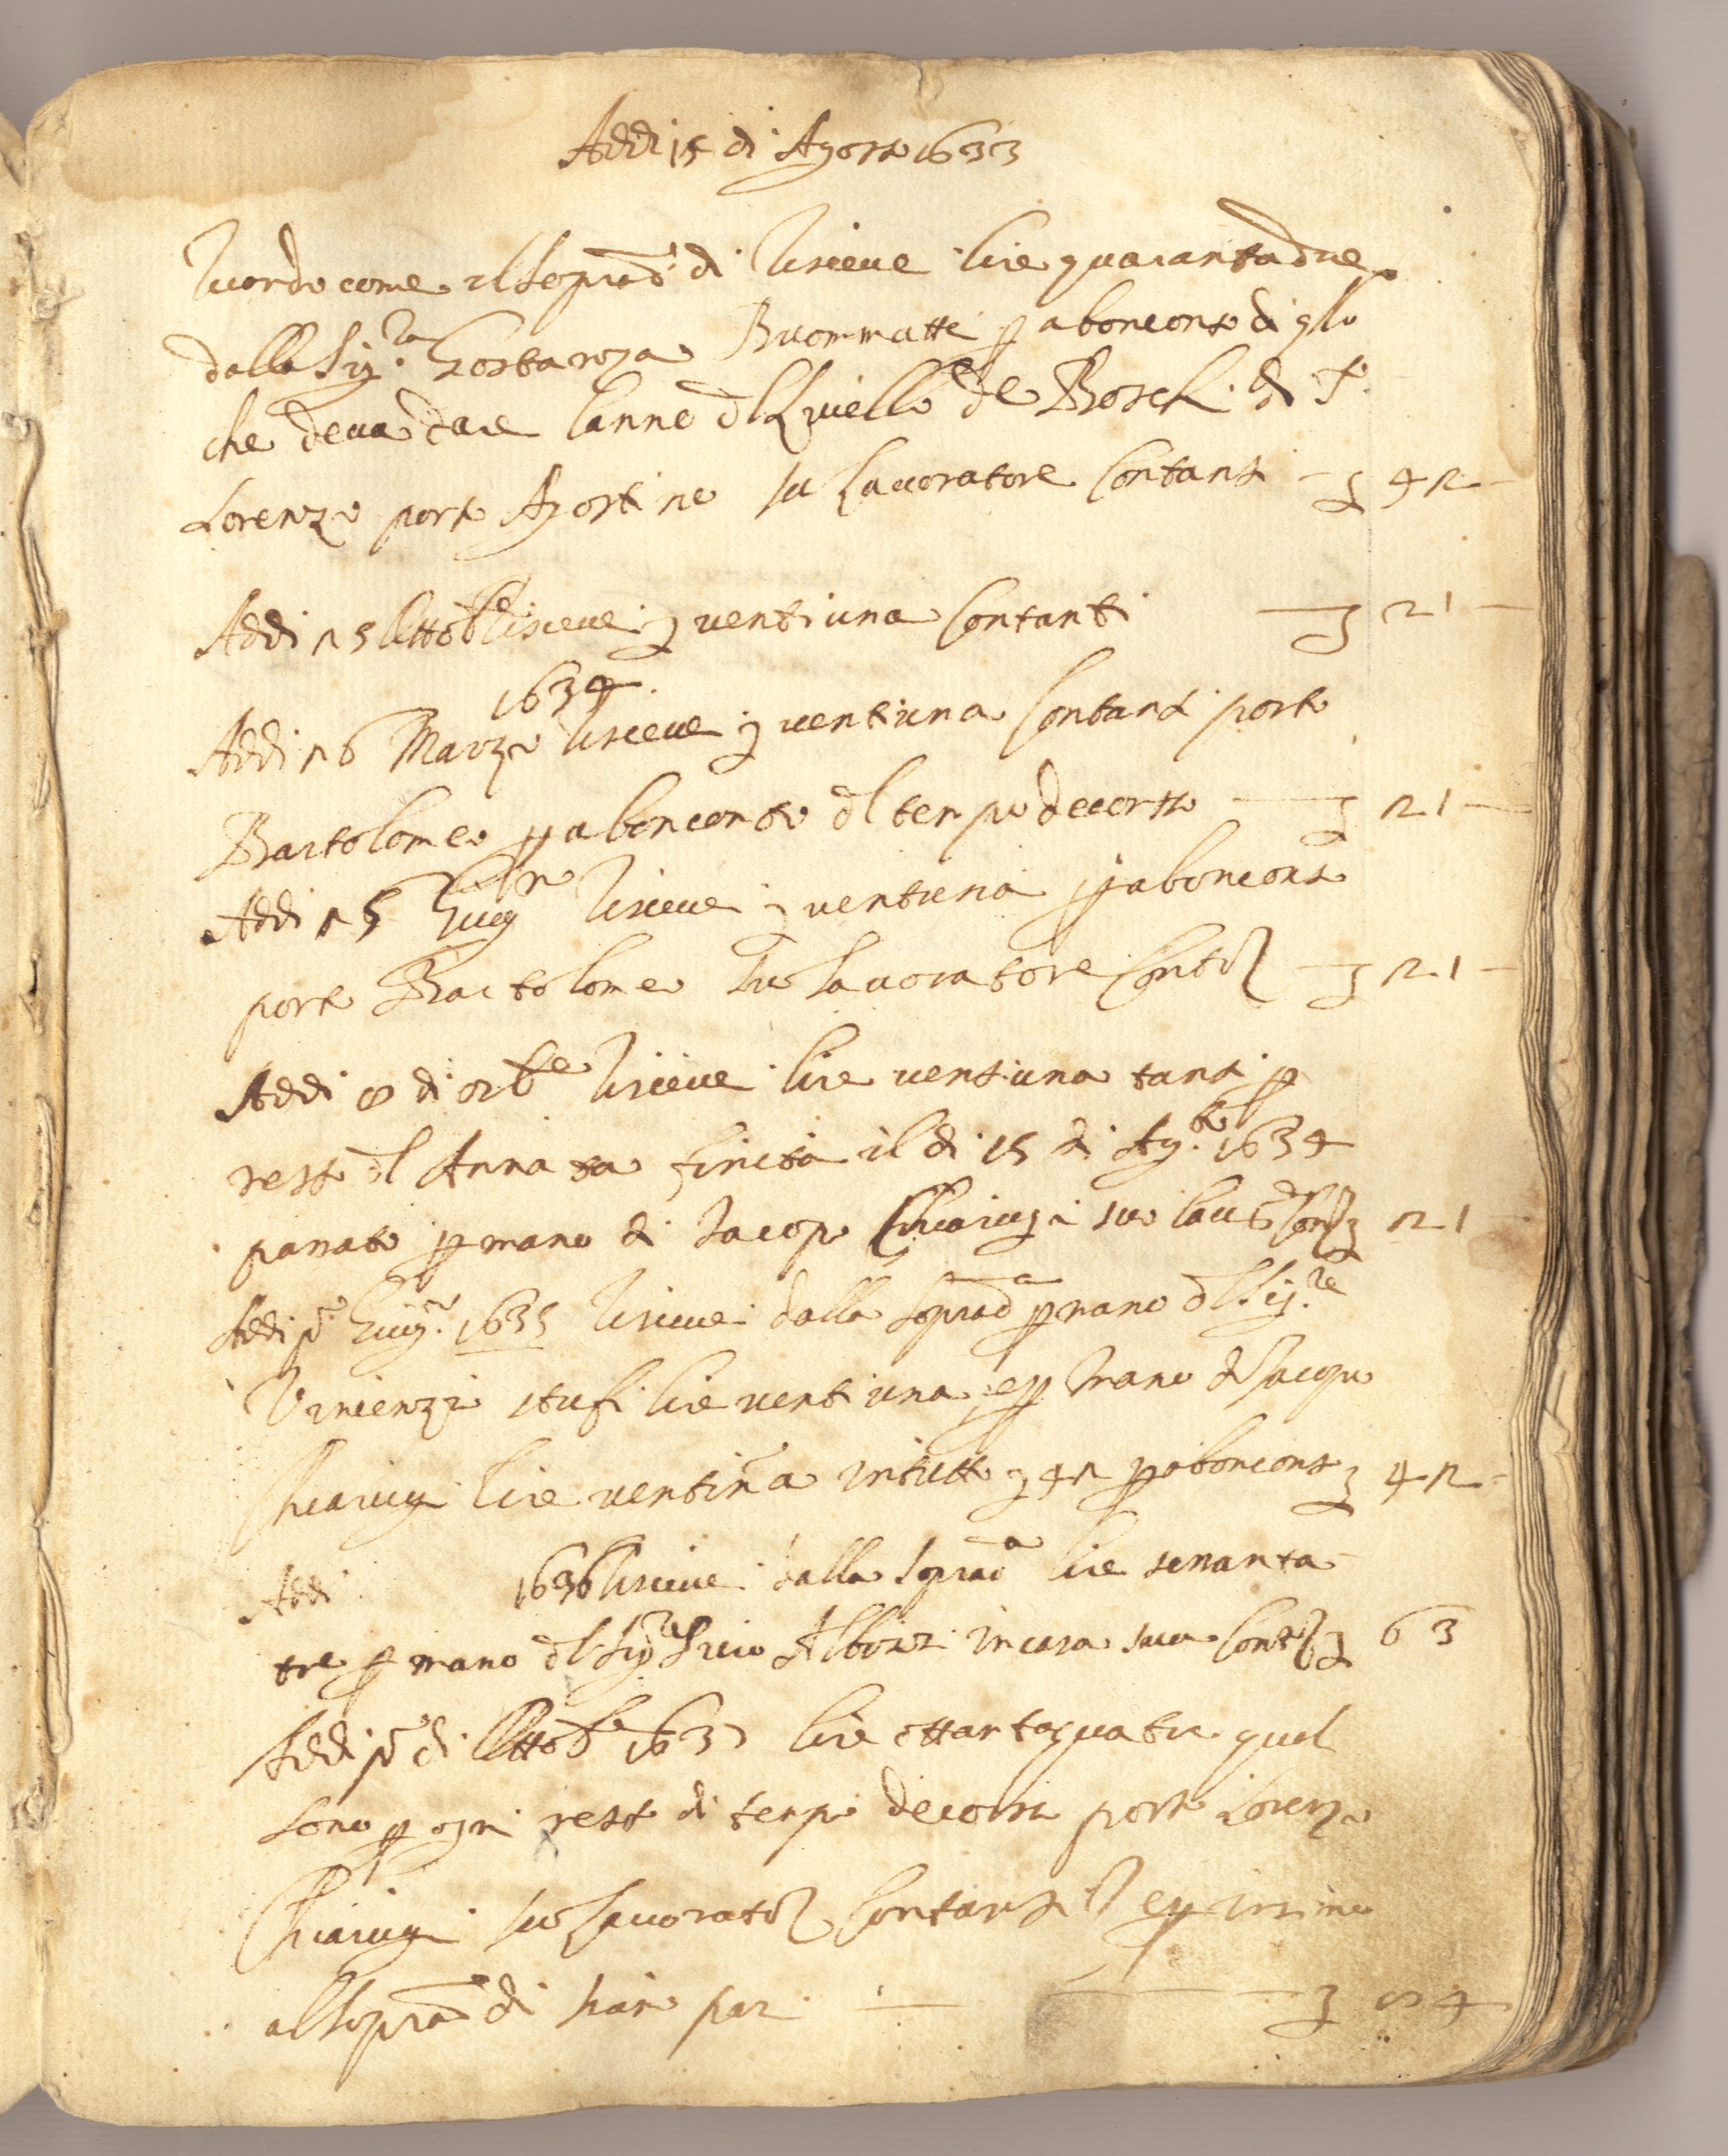 Addi 15 di Agosto 1633
Ricordo come il soprad.o di riceve lire quarantadue
dalla Sig.ra Gostanza Buommatte p a bonconto di qllo
che deva dare lanno dl livello de Boschi di S.
Lorenzo porto Agostino su lavoratore contanti — £ 42 —
Addi 25 Ottobe riceve £ ventiuna contanti — £ 21 —
1634
Addi 26 Marzo riceve £ ventiuna contanti porto
Bartolomeo p a bonconto dl tempo decorso — £ 21 —
Addi 25 Giugno riceve £ ventuna p a bonconto
porto Bartolomeo suo lavoratore contti — £ 21 —
Addi 8 di 9be riceve lire ventiuna tanti p
resto dl Annata finita il di 15 di Ag.to 1634
passato p mano di Jacopo Chiarugi suo lav.re cont. £ 21
Addi p.o Giug.o 1635 riceve dalla soprad.a p mano dl Sig.re
Vincenzio stufi lire ventiuna e p mano di Jacopo
Chiarugi lire ventiuna in tutto £ 42 p a bonconto £ 42 —
Addi 1636 riceve dalla soprad.a lire sessanta
tre p mano dl Sig.re Albizzi in casa sua cont. £ 63
Addi p.o di Ottobe 1637 lire ottantaquatro quel
sono p ogni resto di tempo decorso porto Lorenzo
Chiarugi suo lavorator contanti e p insino
al soprad.o di — £ 84